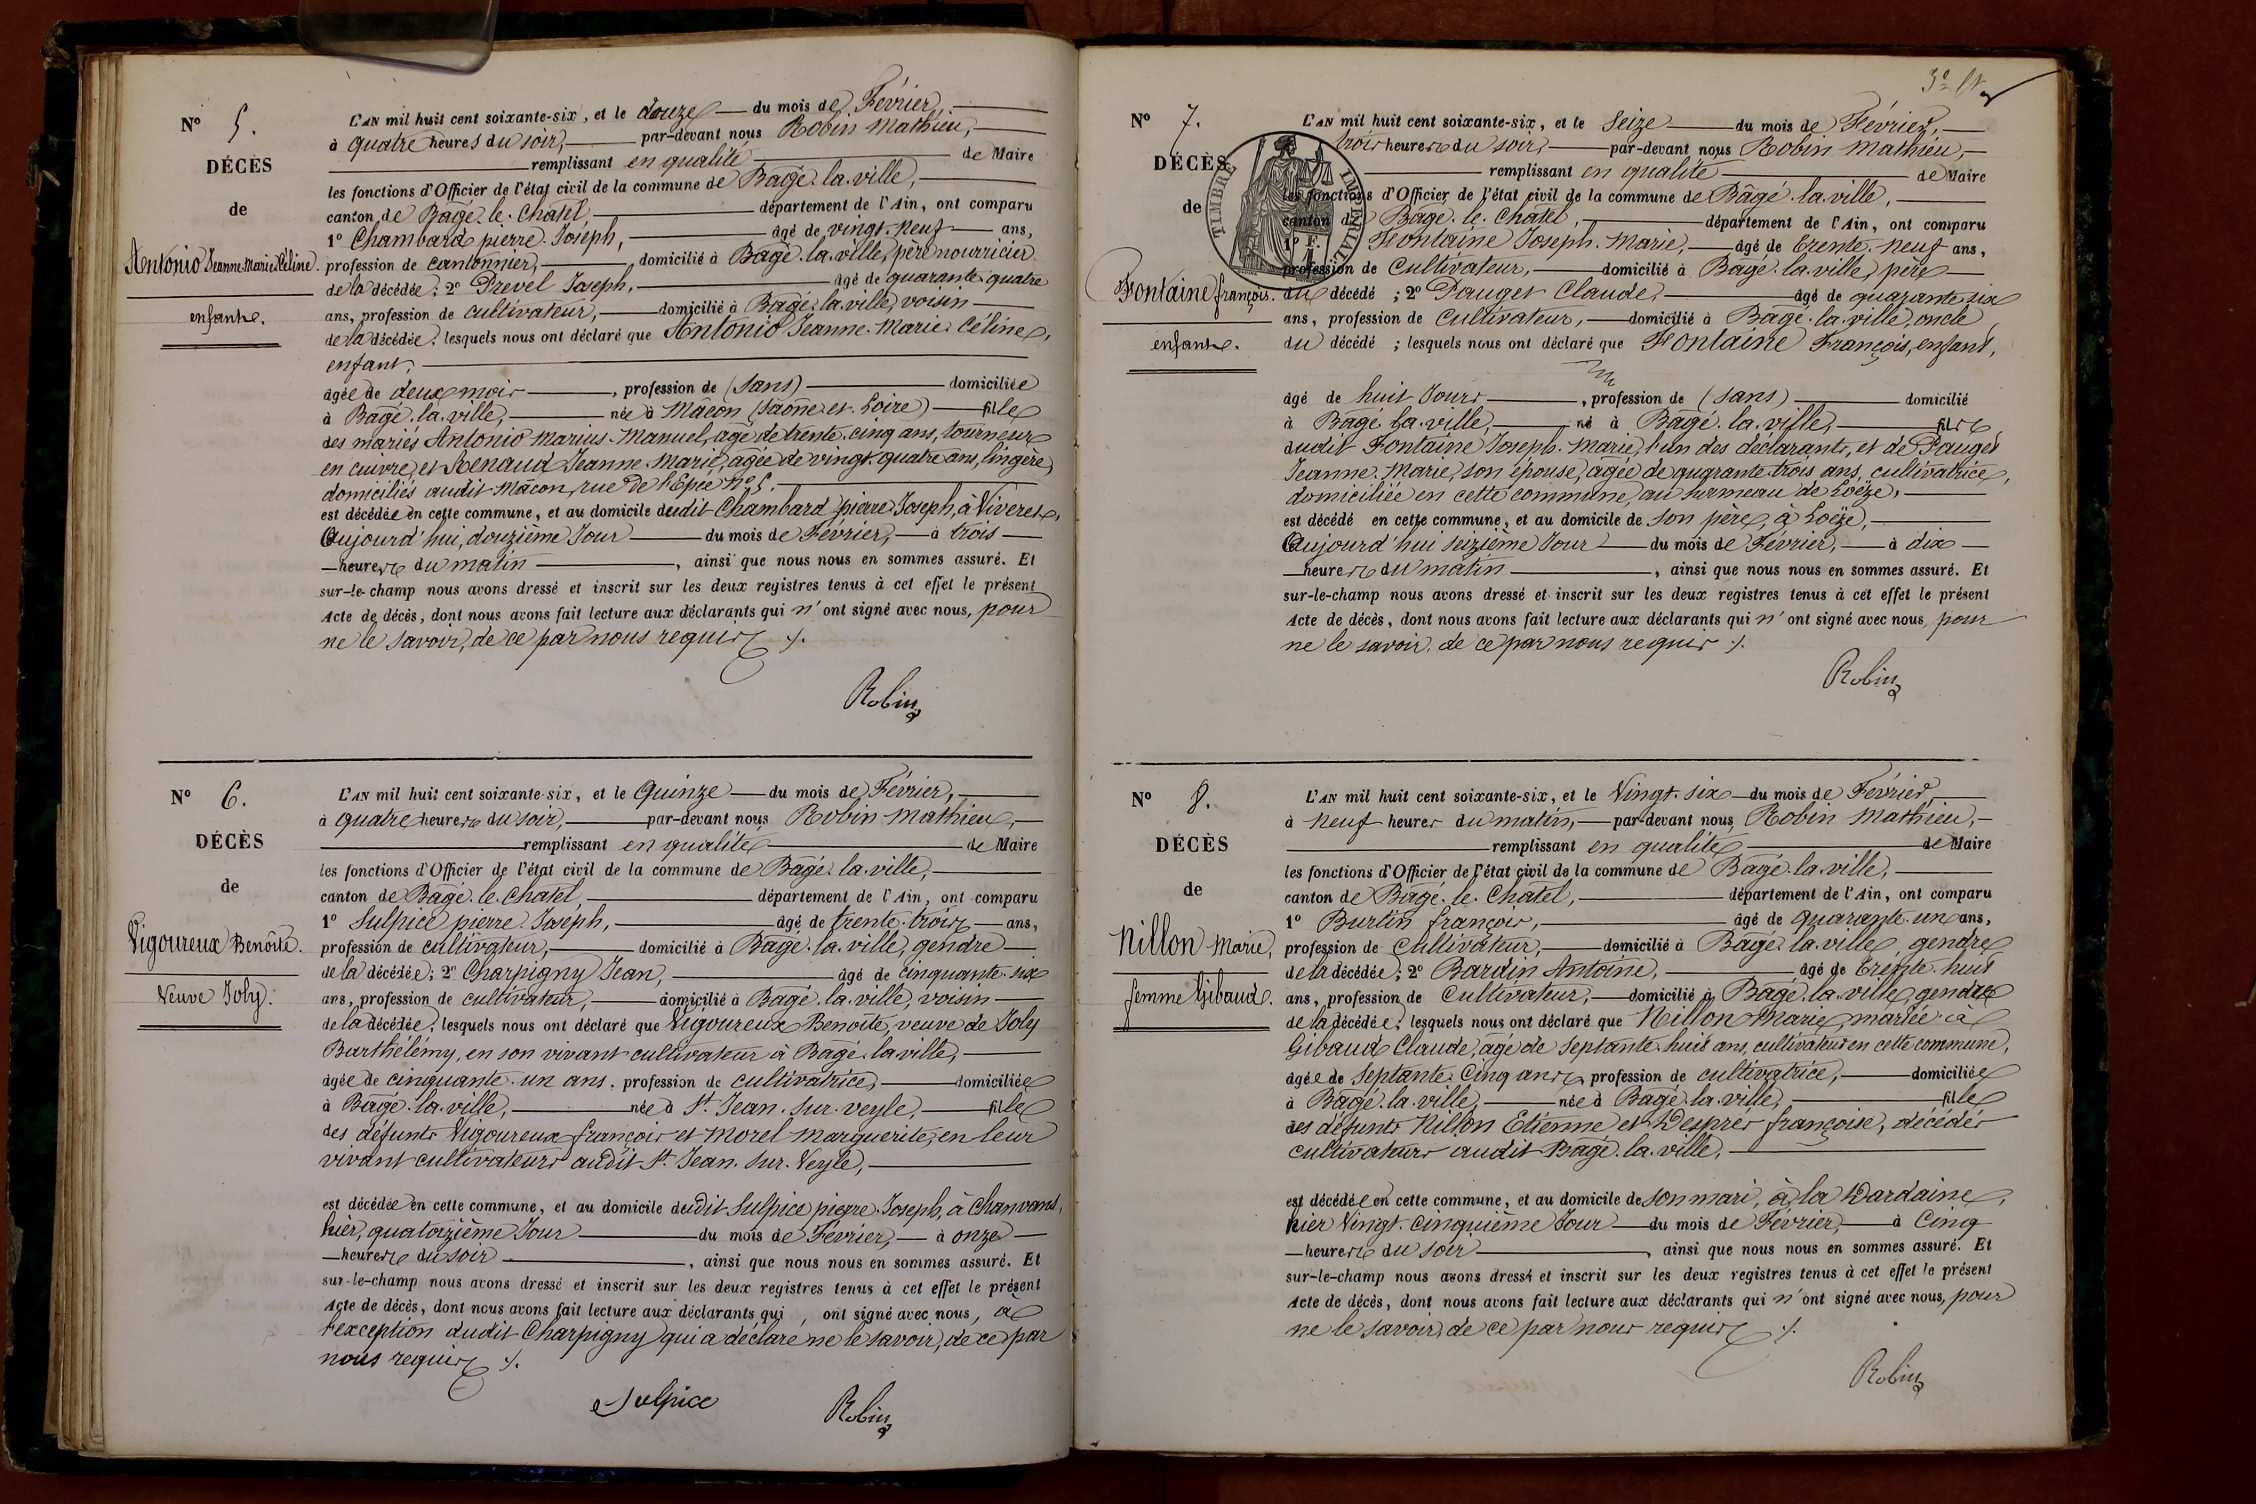 N° 5.
DÉCÈS
de
Antonio Jeanne Marie Céline.
enfant.
L'AN mil huit cent soixante-six, et le douze du mois de Février,
à quatre heures du soir, par-devant nous Robin Mathieu,
remplissant en qualité de Maire
les fonctions d'Officier de l'état civil de la commune de Bâgé-la-ville,
canton de Bâgé-le-Chatel, département de l'Ain, ont comparu
1° Chambard pierre-Joseph, âgé de vingt-neuf ans,
profession de cantonnier, domicilié à Bâgé-la-ville, père nourricier
de la décédée; 2° Prevel Joseph, âgé de quarante-quatre
ans, profession de cultivateur, domicilié à Bâgé-la-ville, voisin
de la décédée, lesquels nous ont déclaré que Antonio Jeanne-Marie-Céline,
enfant,
âgée de deux mois, profession de (sans) domiciliée
à Bâgé-la-ville, née à Mâcon (Saône-et-Loire) fille
des mariés Antonio Marius-Manuel, âgé de trente-cinq ans, tourneur
en cuivre, et Renaud Jeanne-Marie, âgée de vingt-quatre ans, lingère,
domiciliés audit Mâcon, rue de l'Epée N° 5.
est décédée en cette commune, et au domicile dudit Chambard pierre Joseph, à Viveret,
Aujourd'hui, douzième Jour du mois de Février, à trois
heures du matin, ainsi que nous nous en sommes assuré. Et
sur-le-champ nous avons dressé et inscrit sur les deux registres tenus à cet effet le présent
Acte de décès, dont nous avons fait lecture aux déclarants qui n'ont signé avec nous, pour
ne le savoir, de ce par nous requis ./.
Robin
N° 6.
DÉCÈS
de
Vigoureux Benoîte.
Veuve Joly.
L'AN mil huit cent soixante-six, et le Quinze du mois de Février,
à quatre heures du soir, par-devant nous Robin Mathieu,
remplissant en qualité de Maire
les fonctions d'Officier de l'état civil de la commune de Bâgé-la-ville,
canton de Bâgé-le-Chatel, département de l'Ain, ont comparu
1° Sulpice pierre-Joseph, âgé de trente-trois ans,
profession de cultivateur, domicilié à Bâgé-la-ville, gendre
de la décédée; 2° Charpigny Jean, âgé de cinquante-six
ans, profession de cultivateur, domicilié à Bâgé-la-ville, voisin
de la décédée, lesquels nous ont déclaré que Vigoureux Benoîte, veuve de Joly
Barthélémy, en son vivant cultivateur à Bâgé-la-ville,
âgée de cinquante-un ans, profession de cultivatrice, domiciliée
à Bâgé-la-ville, née à St Jean-sur-veyle, fille
des défunts Vigoureux françois et Morel Marguerite, en leur
vivant cultivateurs audit St Jean-sur-Veyle,
est décédée en cette commune, et au domicile dudit Sulpice pierre Joseph, à Chanvans,
hier, quatorzième Jour du mois de Février, à onze
heures du soir, ainsi que nous nous en sommes assuré. Et
sur-le-champ nous avons dressé et inscrit sur les deux registres tenus à cet effet le présent
Acte de décès, dont nous avons fait lecture aux déclarants qui, ont signé avec nous, à
l'exception dudit Charpigny qui a déclaré ne le savoir, de ce par
nous requis ./.
Sulpice Robin
3e
N° 7.
DÉCÈS
de
Fontaine françois.
enfant.
TIMBRE IMPÉRIAL
L'AN mil huit cent soixante-six, et le Seize du mois de Février,
trois heures du soir, par-devant nous Robin Mathieu,
remplissant en qualité de Maire
les fonctions d'Officier de l'état civil de la commune de Bâgé-la-ville,
canton de Bâgé-le-Chatel, département de l'Ain, ont comparu
1° Fontaine Joseph-Marie, âgé de trente-neuf ans,
profession de Cultivateur, domicilié à Bâgé-la-ville, père
du décédé; 2° Pauget Claude, âgé de quarante-six
ans, profession de Cultivateur, domicilié à Bâgé-la-ville, oncle
du décédé; lesquels nous ont déclaré que Fontaine François, enfant,
âgé de huit Jours, profession de (sans) domicilié
à Bâgé-la-ville, né à Bâgé-la-ville, fils
dudit Fontaine Joseph-Marie, l'un des déclarants, et de Pauget
Jeanne-Marie, son épouse, âgée de quarante-trois ans, cultivatrice,
domiciliée en cette commune, au hameau de Loëze,
est décédé en cette commune, et au domicile de son père, à Loëze,
Aujourd'hui seizième Jour du mois de Février, à dix
heures du matin, ainsi que nous nous en sommes assuré. Et
sur-le-champ nous avons dressé et inscrit sur les deux registres tenus à cet effet le présent
Acte de décès, dont nous avons fait lecture aux déclarants qui n'ont signé avec nous, pour
ne le savoir, de ce par nous requis ./.
Robin
N° 8.
DÉCÈS
de
Nillon Marie,
femme Gibaud.
L'AN mil huit cent soixante-six, et le Vingt-six du mois de Février
à Neuf heures du matin, par-devant nous, Robin Mathieu,
remplissant en qualité de Maire
les fonctions d'Officier de l'état civil de la commune de Bâgé-la-ville,
canton de Bâgé-le-Chatel, département de l'Ain, ont comparu
1° Burtin françois, âgé de quarante-un ans,
profession de cultivateur, domicilié à Bâgé-la-ville, gendre
de la décédée; 2° Bardin Antoine, âgé de trente-huit
ans, profession de Cultivateur, domicilié à Bâgé-la-ville, gendre
de la décédée, lesquels nous ont déclaré que Nillon Marie, mariée à
Gibaud Claude, âgé de septante-huit ans, cultivateur en cette commune,
âgée de septante-Cinq ans, profession de cultivatrice, domiciliée
à Bâgé-la-ville, née à Bâgé-la-ville, fille
des défunts Nillon Etienne et Desprès françoise, décédés
cultivateurs audit Bâgé-la-ville,
est décédée en cette commune, et au domicile de son mari, à la Dardaine,
hier Vingt-cinquième Jour du mois de Février, à Cinq
heures du soir, ainsi que nous nous en sommes assuré. Et
sur-le-champ nous avons dressé et inscrit sur les deux registres tenus à cet effet le présent
Acte de décès, dont nous avons fait lecture aux déclarants qui n'ont signé avec nous, pour
ne le savoir, de ce par nous requis ./.
Robin